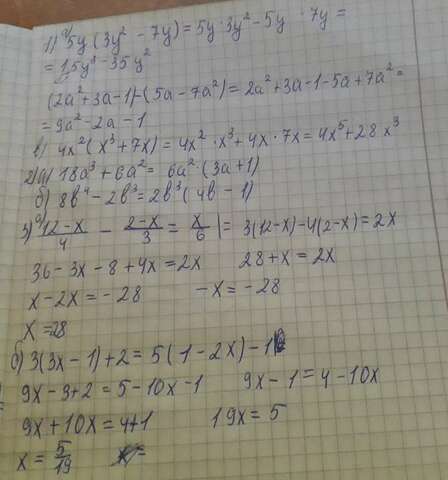 1) а) 5y (3y² - 7y) = 5y · 3y² - 5y · 7y =
= 15y³ - 35y²
(2a² + 3a - 1) - (5a - 7a²) = 2a² + 3a - 1 - 5a + 7a² =
= 9a² - 2a - 1
в) 4x² (x³ + 7x) = 4x² · x³ + 4x · 7x = 4x⁵ + 28x³
2) а) 18a³ + 6a² = 6a² · (3a + 1)
б) 8b⁴ - 2b³ = 2b³ (4b - 1)
3) а) (12-x)/4 - (2-x)/3 = x/6 | = 3(12-x) - 4(2-x) = 2x
36 - 3x - 8 + 4x = 2x 28 + x = 2x
x - 2x = -28 -x = -28
x = 28
б) 3(3x - 1) + 2 = 5(1 - 2x) - 1
9x - 3 + 2 = 5 - 10x - 1 9x - 1 = 4 - 10x
9x + 10x = 4 + 1 19x = 5
x = 5/19